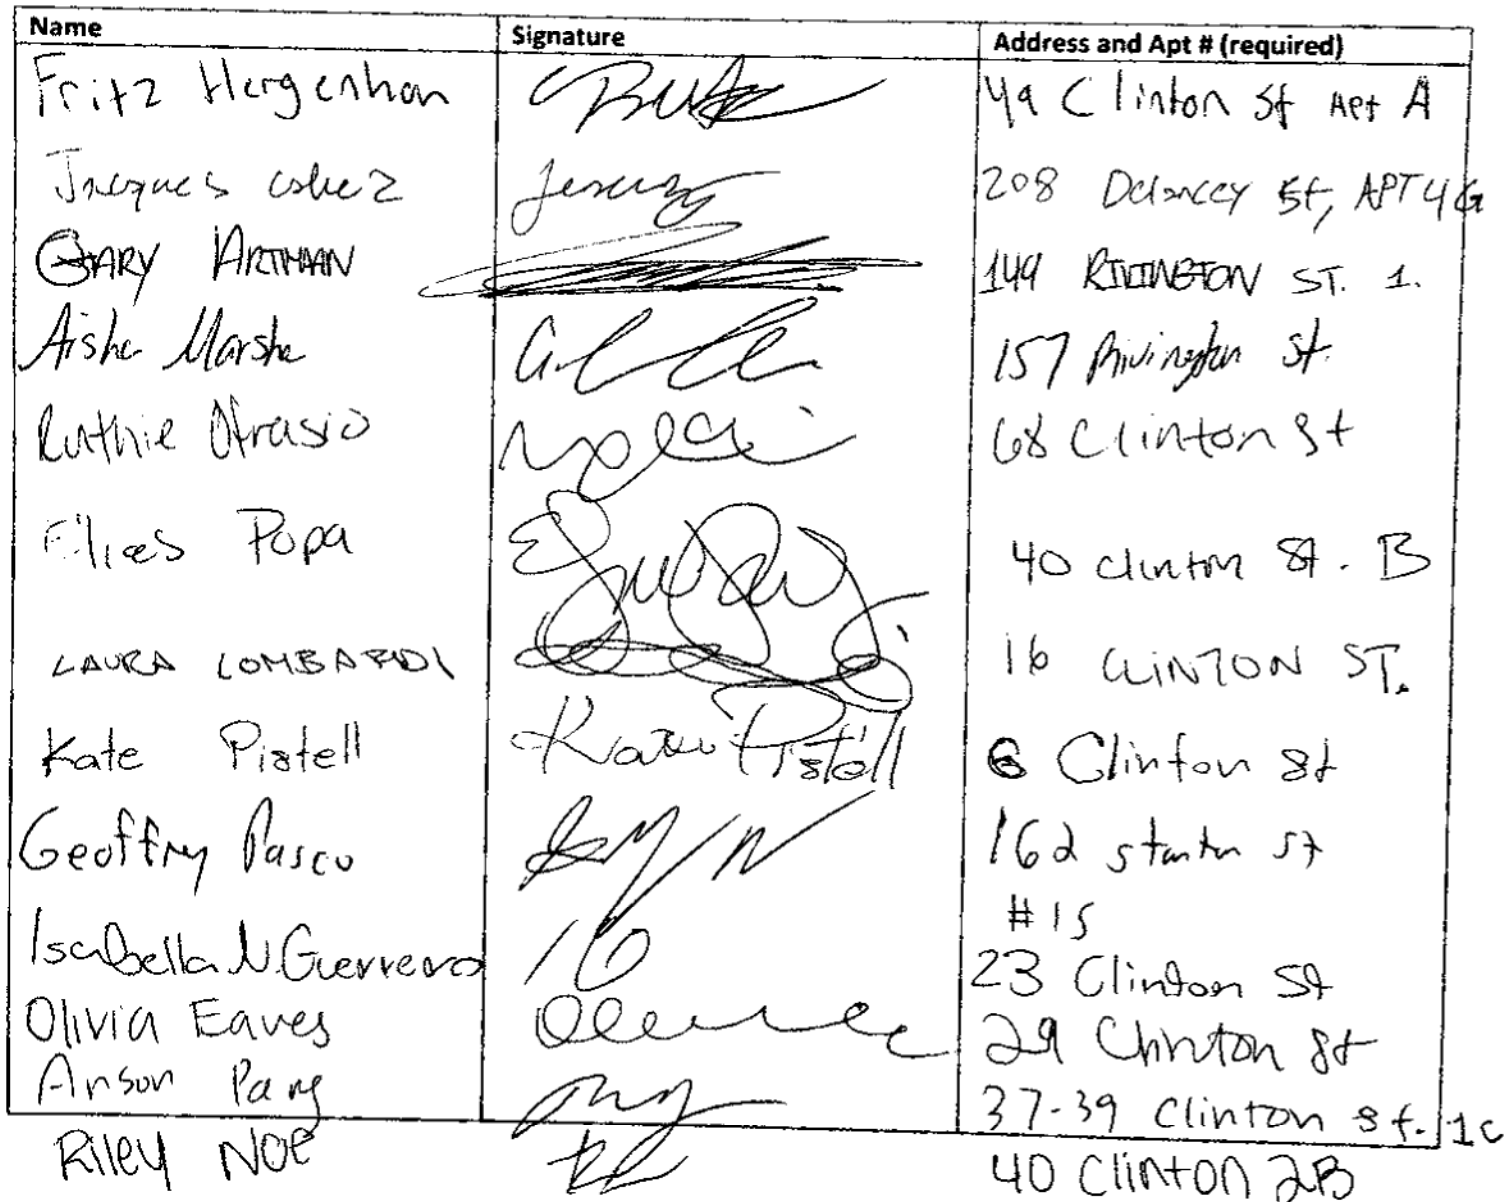 Name Signature Address and Apt # (required)
Fritz Hergenhan 49 Clinton St Apt A
Jacques 208 Delancey St, APT 4G
GARY ARTMAN 149 RIVINGTON ST. 1.
Aisha Marsha 157 Rivington St.
Ruthie Ofrasio 68 Clinton St
Elias Popa 40 clinton St. B
LAURA LOMBARDI 16 CLINTON ST.
Kate Pistell Kate Pistell 6 Clinton St
Geoffrey Pasco 162 stanton st
#15
Isabella N. Guerrero IG 23 Clinton St
Olivia Eaves 29 Clinton St
Anson Pang 37-39 Clinton St. 1C
Riley NOE 40 Clinton 2B